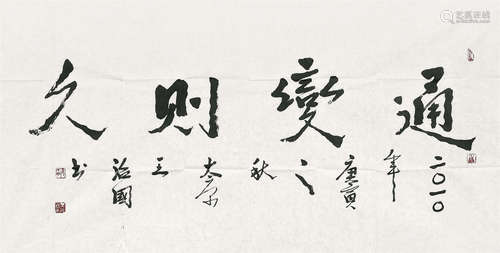 通變則久
二〇一〇年庚寅之秋太原王治國书